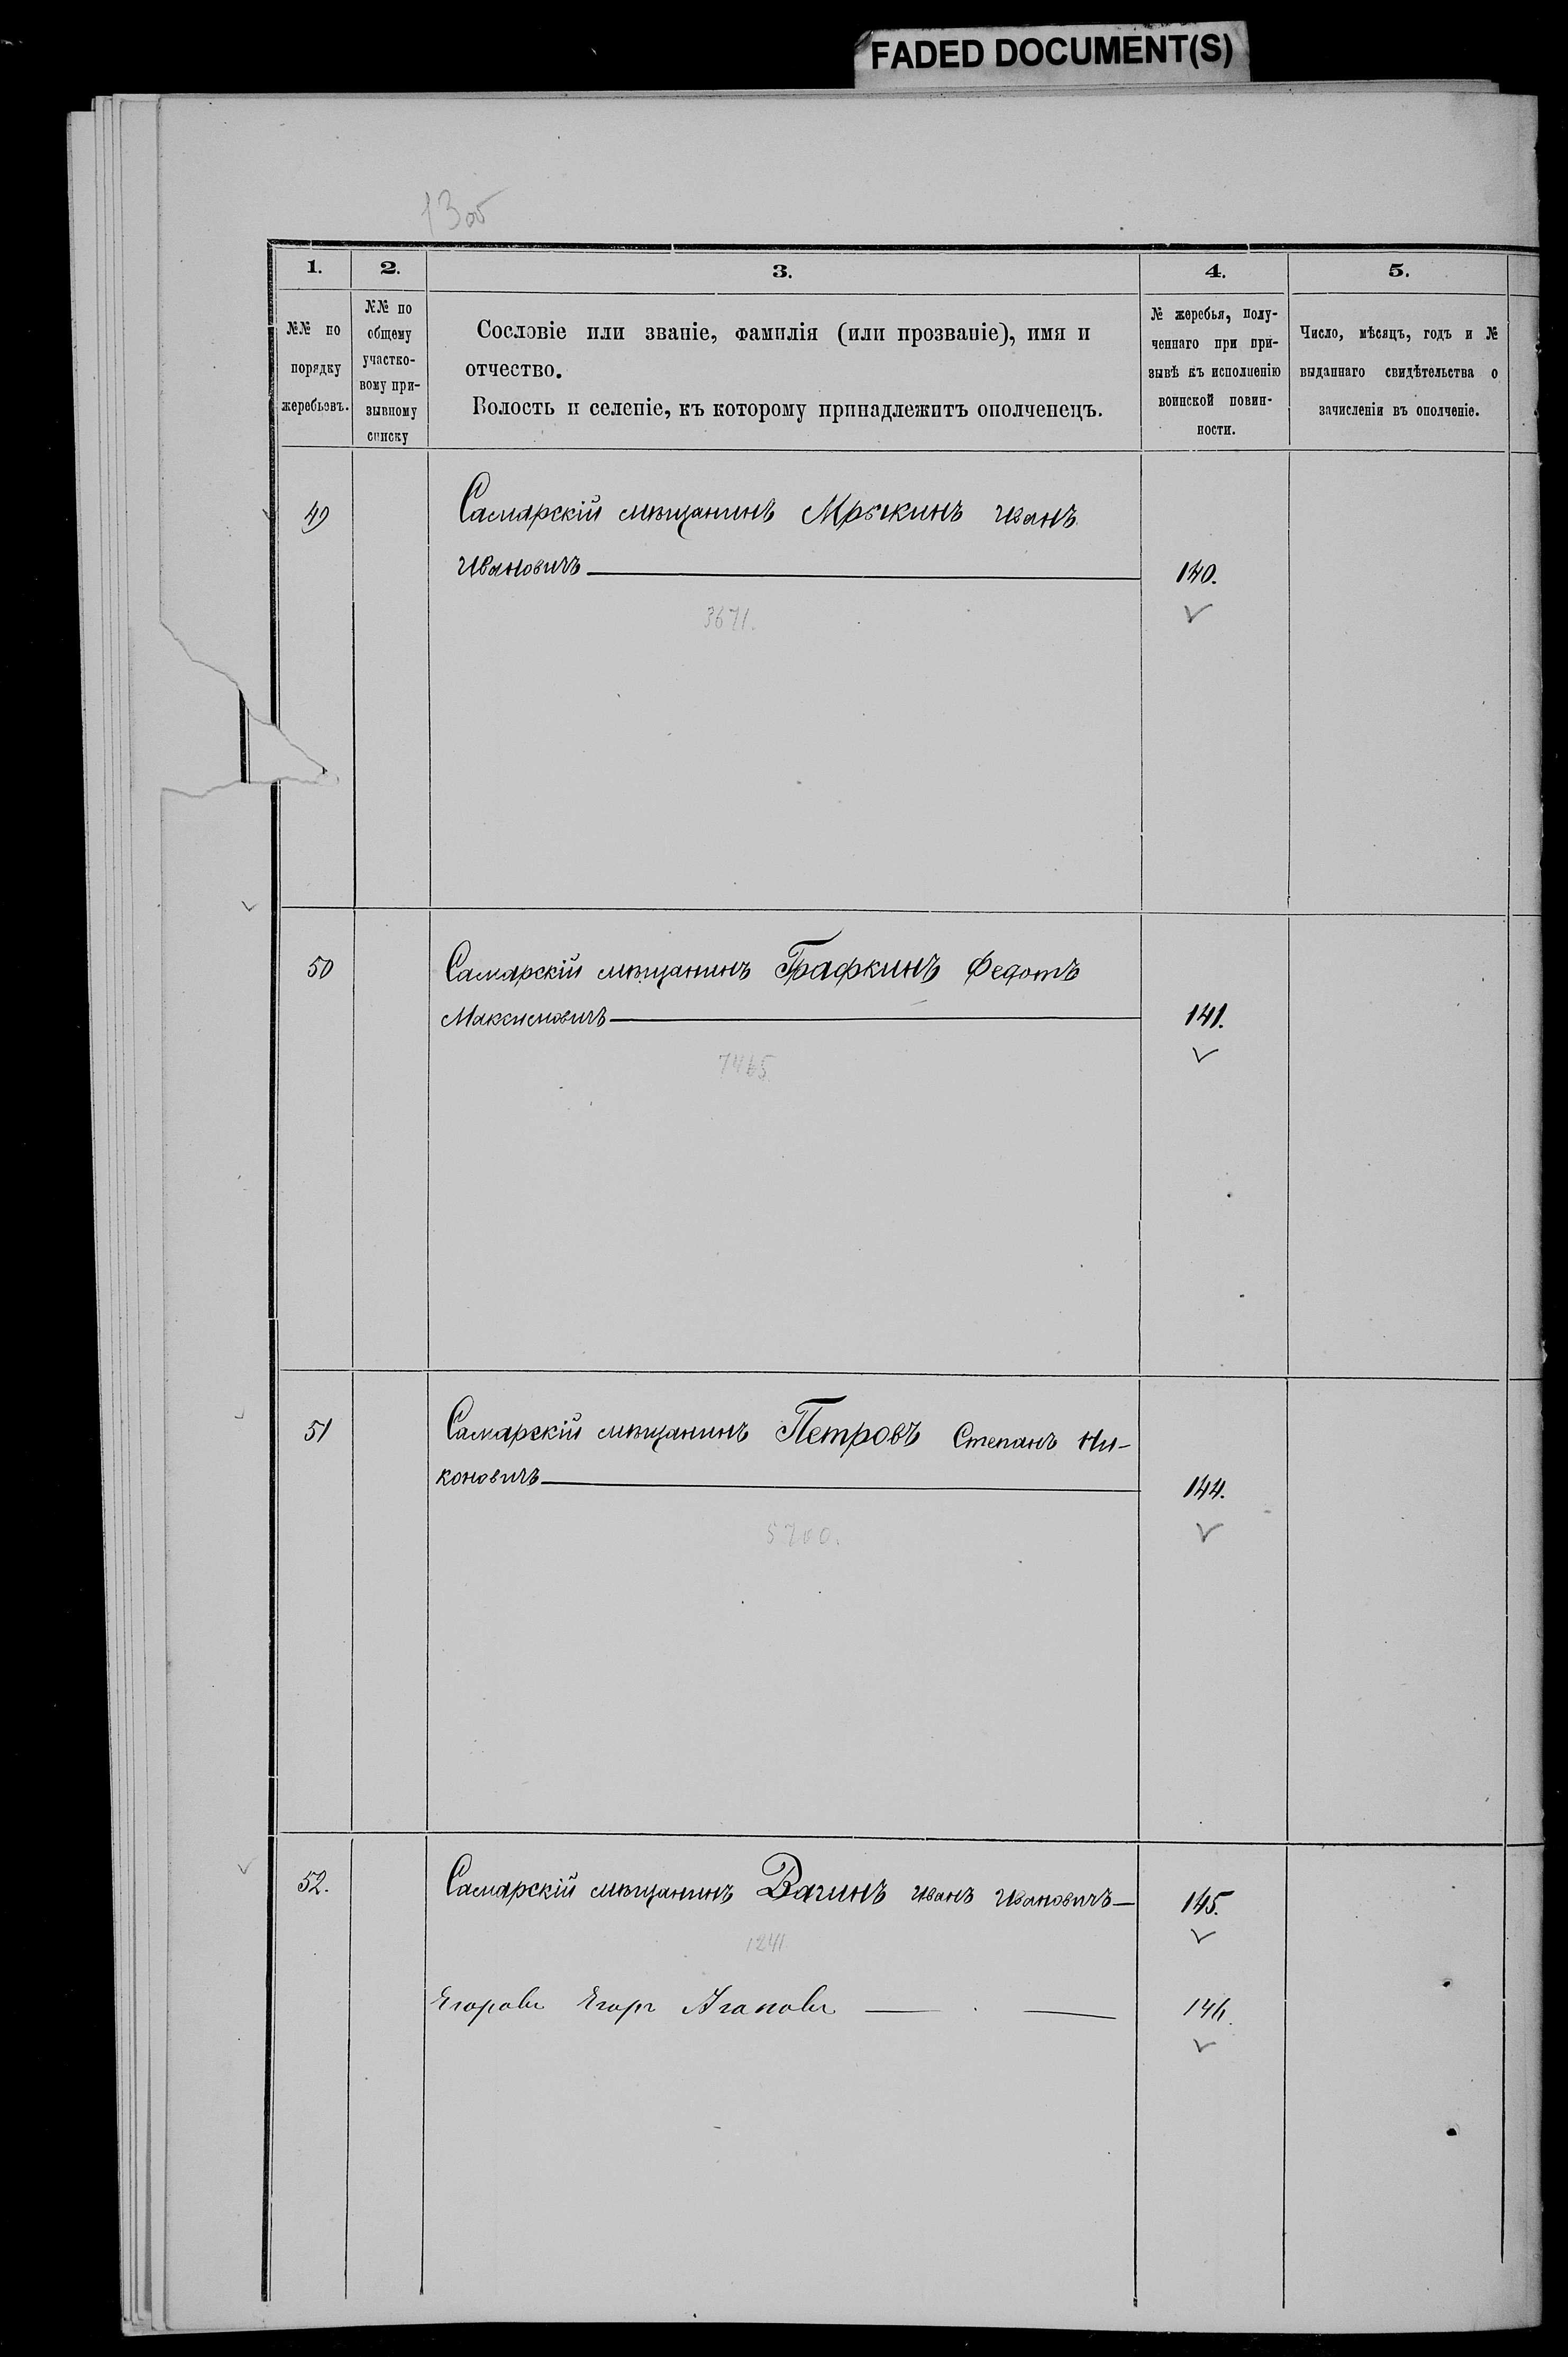 FADED DOCUMENT(S)
13об
1. 2. 3. 4. 5.
№№ по порядку жеребьевъ.
№№ по общему участковому призывному списку
Сословіе или званіе, фамилія (или прозваніе), имя и
отчество.
Волость и селеніе, къ которому принадлежитъ ополченецъ.
№ жеребья, полу-
ченнаго при при-
зывѣ къ исполненію
воинской повин-
ности.
Число, мѣсяцъ, годъ и №
выданнаго свидѣтельства о
зачисленіи въ ополченіе.
49 Самарскій мѣщанинъ Мрыкинъ Иванъ
Ивановичъ 140.
3671.
50 Самарскій мѣщанинъ Графкинъ Федотъ
Максимовичъ 141.
7465
51 Самарскій мѣщанинъ Петровъ Степанъ Ни-
коновичъ 144.
5700.
52. Самарскій мѣщанинъ Вагинъ Иванъ Ивановичъ 145.
1241
Егоровъ Егоръ Агаповъ 146.